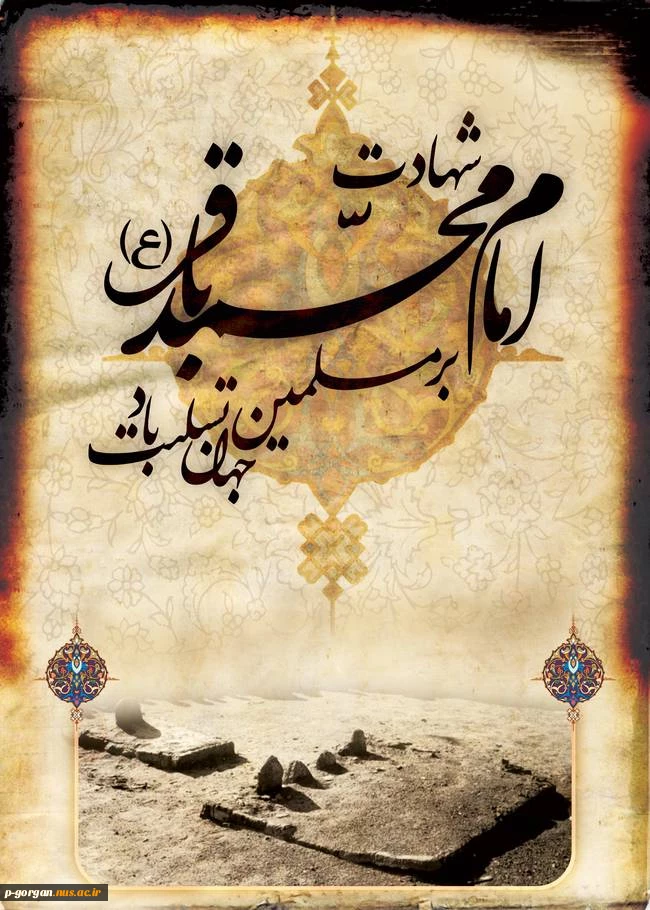 شهادت
امام محمد باقر (ع)
بر مسلمین
جهان تسلیت باد
p-gorgan.nus.ac.ir